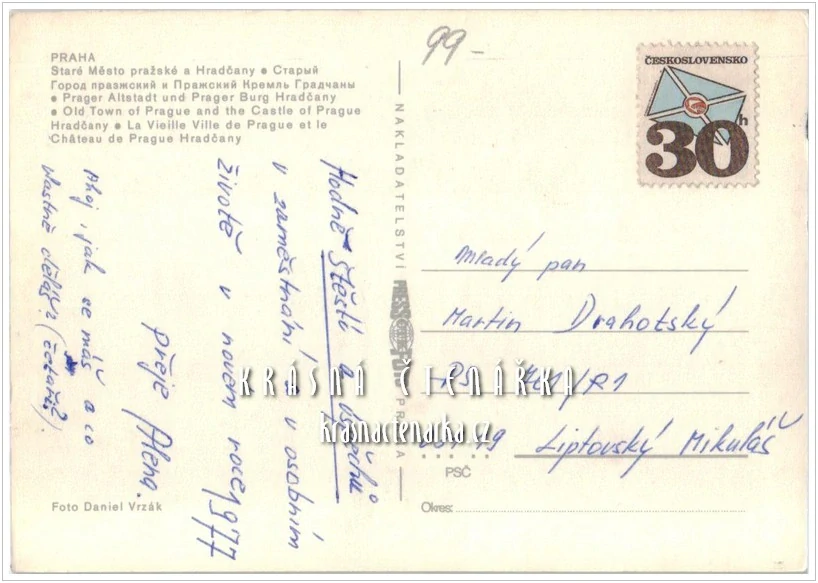 99-
PRAHA
Staré Město pražské a Hradčany • Старый
Город празжский и Пражский Кремль Градчаны
• Prager Altstadt und Prager Burg Hradčany
• Old Town of Prague and the Castle of Prague
Hradčany • La Vieille Ville de Prague et le
Château de Prague Hradčany
Hodně štěstí a úspěchů
v zaměstnání a v osobním
životě v novém roce 1977
přeje Alena.
Ahoj, jak se máš a co
vlastně děláš? (četaři?).
Foto Daniel Vrzák
NAKLADATELSTVÍ PRESSFOTO PRAHA
ČESKOSLOVENSKO
30h
Mladý pan
Martin Drahotský
PS
Liptovský Mikuláš
PSČ
Okres:
KRÁSNÁ ČTENÁŘKA
krasnactenarka.cz